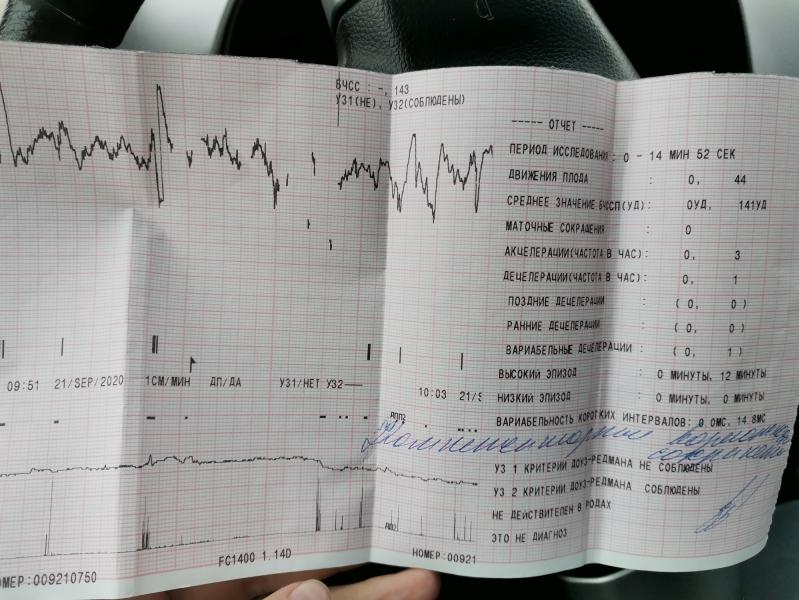 БЧСС : -, 143
УЗ1(НЕ), УЗ2(СОБЛЮДЕНЫ)
----- ОТЧЕТ -----
ПЕРИОД ИССЛЕДОВАНИЯ: 0 - 14 МИН 52 СЕК
ДВИЖЕНИЯ ПЛОДА : 0, 44
СРЕДНЕЕ ЗНАЧЕНИЕ БЧССП(УД): 0УД, 141УД
МАТОЧНЫЕ СОКРАЩЕНИЯ : 0
АКЦЕЛЕРАЦИИ(ЧАСТОТА В ЧАС): 0, 3
ДЕЦЕЛЕРАЦИИ(ЧАСТОТА В ЧАС): 0, 1
ПОЗДНИЕ ДЕЦЕЛЕРАЦИИ : ( 0, 0)
РАННИЕ ДЕЦЕЛЕРАЦИИ : ( 0, 0)
ВАРИАБЕЛЬНЫЕ ДЕЦЕЛЕРАЦИИ : ( 0, 1)
ВЫСОКИЙ ЭПИЗОД : 0 МИНУТЫ, 12 МИНУТЫ
НИЗКИЙ ЭПИЗОД : 0 МИНУТЫ, 0 МИНУТЫ
ВАРИАБЕЛЬНОСТЬ КОРОТКИХ ИНТЕРВАЛОВ: 0 0МС, 14.8МС
УЗ 1 КРИТЕРИИ ДОУЗ-РЕДМАНА НЕ СОБЛЮДЕНЫ
УЗ 2 КРИТЕРИИ ДОУЗ-РЕДМАНА СОБЛЮДЕНЫ
НЕ ДЕЙСТВИТЕЛЕН В РОДАХ
ЭТО НЕ ДИАГНОЗ
09:51 21/SEP/2020 1СМ/МИН ДП/ДА УЗ1/НЕТ УЗ2
10:03 21/S
FC1400 1.14D
НОМЕР:00921
ОМЕР:009210750